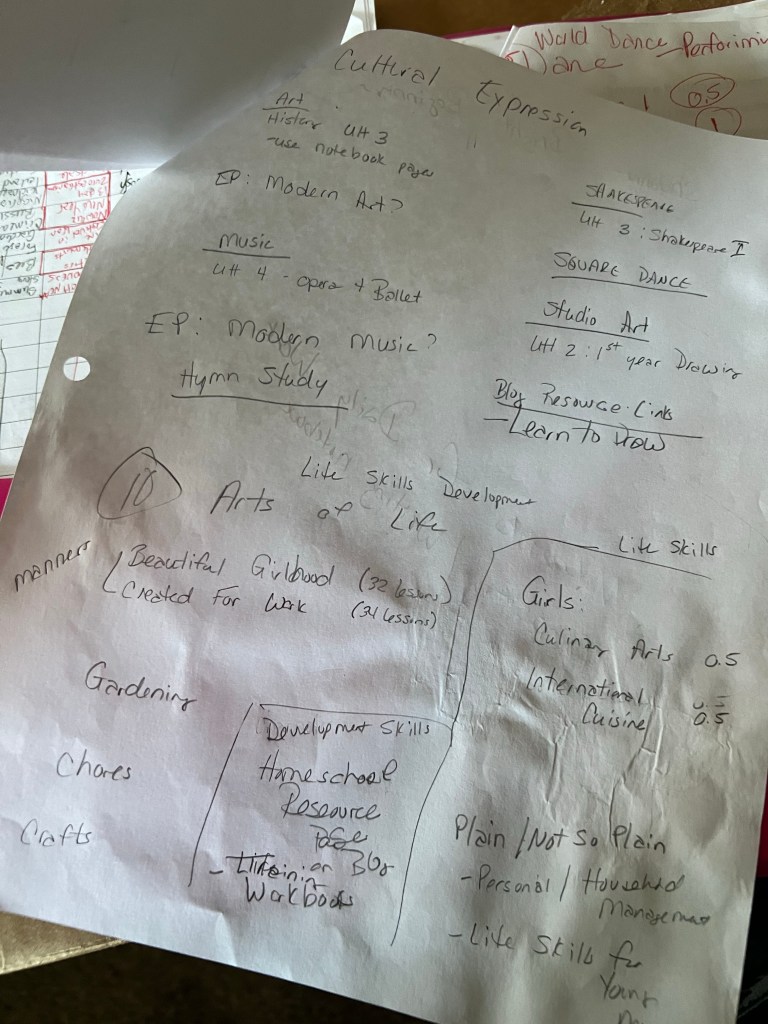 World Dance - Performin
0.5
1
Cultural Expression
Art
History UH 3
-use notebook pages
EP: Modern Art?
Music
UH 4 - opera + Ballet
EP: Modern Music?
Hymn Study
SHAKESPEARE
UH 3 : Shakespeare I
SQUARE DANCE
Studio Art
UH 2 : 1st year Drawing
Blog Resource Links
- Learn to Draw
Life Skills Development
10 Arts of Life
manners
Beautiful Girlhood (32 lessons)
Created For Work (34 lessons)
Gardening
Chores
Crafts
Development Skills
Homeschool
Resource
Page
on Blog
Workbooks
Life Skills
Girls:
Culinary Arts 0.5
International
Cuisine 0.5
Plain / Not So Plain
- Personal / Household
Management
- Life Skills for
Young